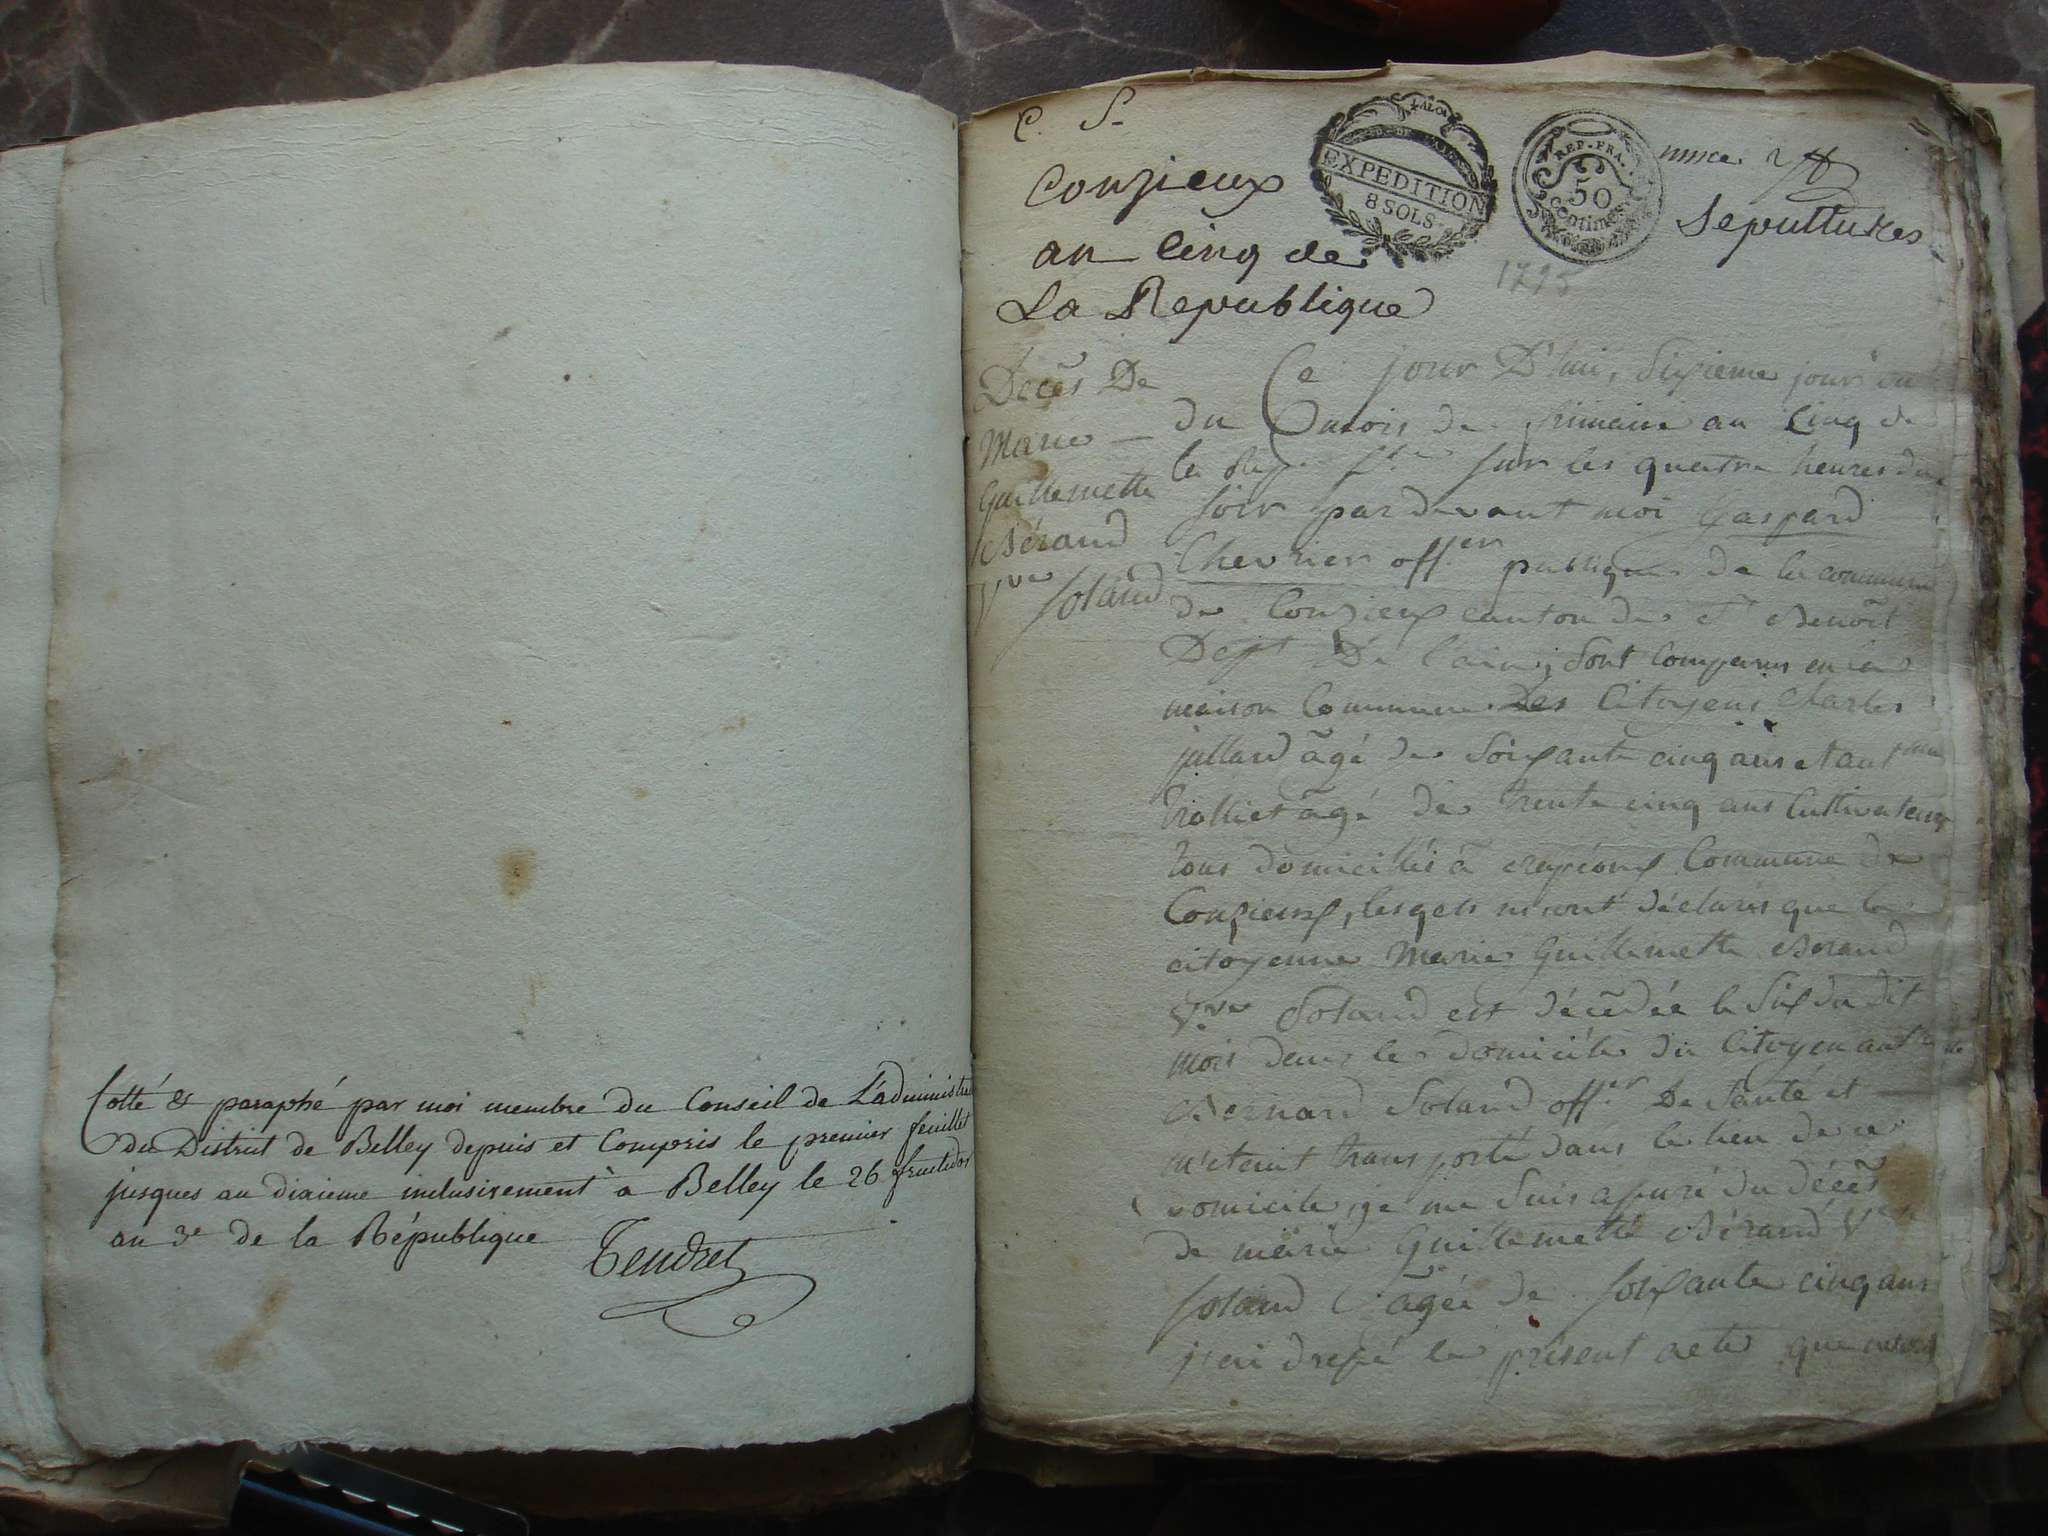 Cotté & paraphé par moi membre du Conseil de L'administra
du District de Belley depuis et Compris le premier feuillet
jusques au dixieme inclusivement à Belley le 26 fructidor
an 3e de la République
Tendret
C. S.
EXPEDITION
8 SOLS
REP. FRA.
50
centimes
Conzieux
an cinq de
La Republique
Sepulttures
1795
Décês De
Marie
Guillemette
Bérard
Vve Soland
Ce jour D'hui, Sixieme jour du
du mois de frimaire an Cinq de
la Rep. sur les quatre heures du
soir par devant moi Gaspard
Chevrier off.er publique de la commune
de Conzieux canton de St Benoît
Dept De l'ain, sont comparus en la
maison Commune Des Citoyens Charles
jullard âgé de Soixante cinq ans et ant
trolliet âgé de trente cinq ans Cultivateurs
tous domiciliés à crapéoux Commune de
Conzieux, lesqels m'ont déclarés que la
citoyenne Marie Guillemette Berard
Vve Soland est décedée le Six du dit
mois dans le domicile du Citoyen ant
Bernard Soland off.er De Santé et
m'etant transporté dans le lieu de ce
domicile, je me suis assuré du décês
de marie Guillemette Bérard Vve
Soland âgée de soixante cinq ans
j'ai dressé le present acte que